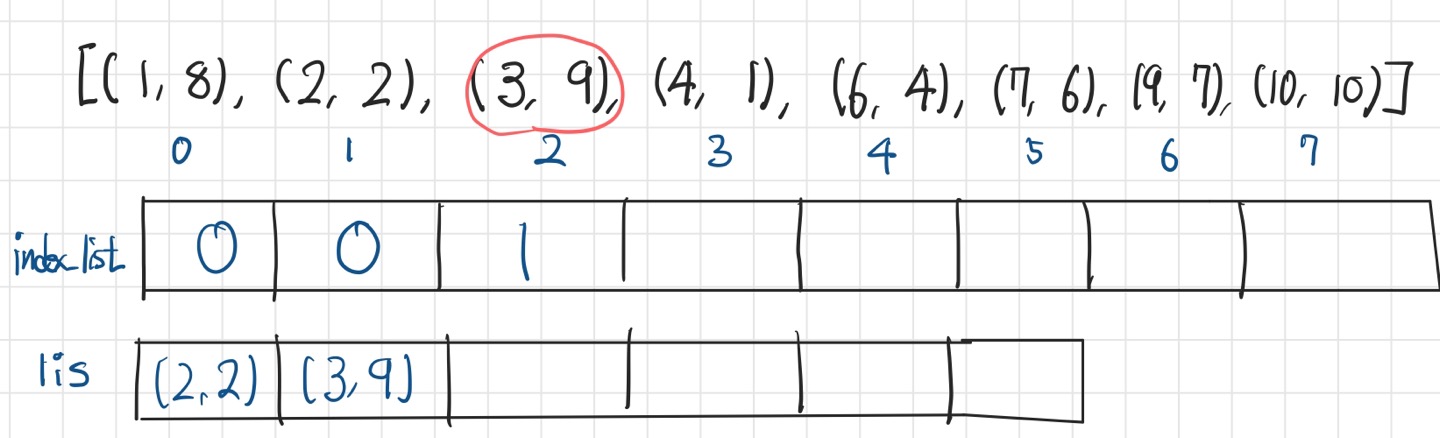 [(1, 8), (2, 2), (3, 9), (4, 1), (6, 4), (7, 6), (9, 7), (10, 10)]
0 1 2 3 4 5 6 7
index_list 0 0 1
lis (2,2) (3,9)